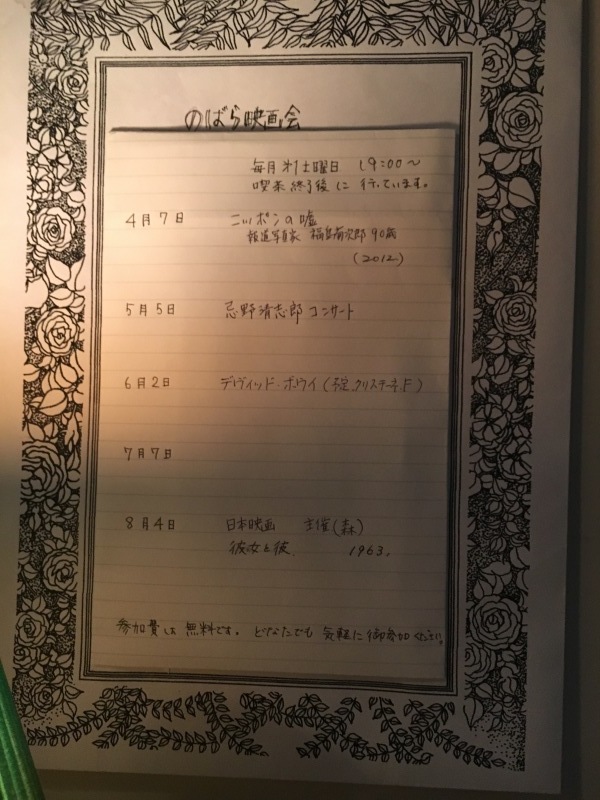 のばら映画会
毎月第1土曜日 19:00〜
喫茶終了後に行っています。
4月7日 ニッポンの嘘
報道写真家 福島菊次郎 90歳
(2012)
5月5日 忌野清志郎コンサート
6月2日 デヴィッド・ボウイ(予定、クリスチーネ・F)
7月7日
8月4日 日本映画 主催(森)
彼女と彼 1963.
参加費は無料です。どなたでも気軽に御参加ください。